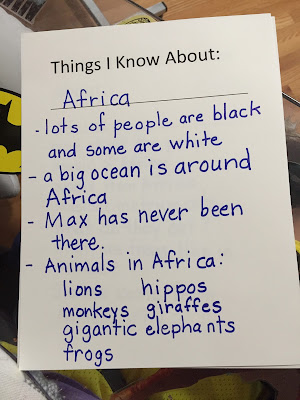 Things I Know About:
Africa
- lots of people are black
and some are white
- a big ocean is around
Africa
- Max has never been
there.
- Animals in Africa:
lions hippos
monkeys giraffes
gigantic elephants
frogs